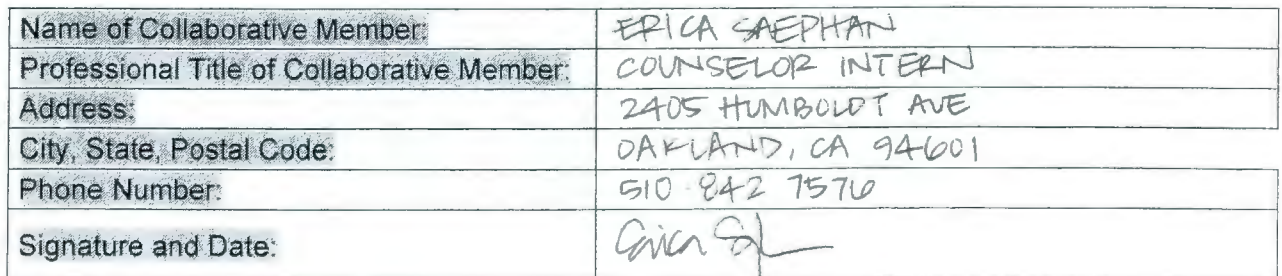 Name of Collaborative Member: ERICA SAEPHAN
Professional Title of Collaborative Member: COUNSELOR INTERN
Address: 2405 HUMBOLDT AVE
City, State, Postal Code: OAKLAND, CA 94601
Phone Number: 510 842 7576
Signature and Date: Erica